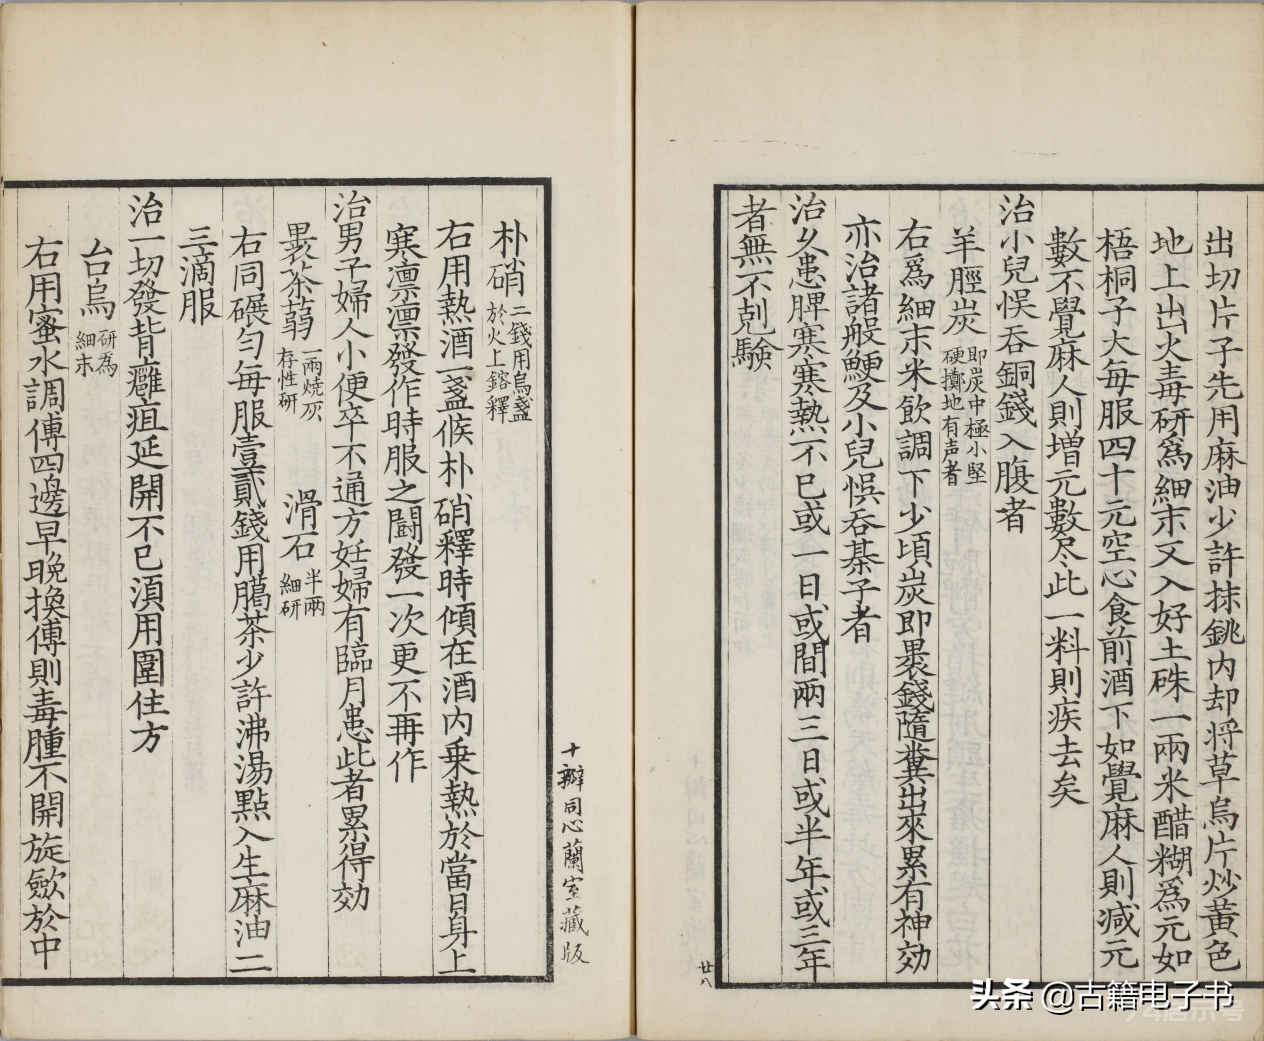 出切片子先用麻油少許抹銚内却将草烏片炒黃色
地上出火毒研爲細末又入好土硃一兩米醋糊爲元如
梧桐子大每服四十元空心食前酒下如覺麻人則減元
數不覺麻人則增元數尽此一料則疾去矣
治小兒悮吞銅錢入腹者
羊脛炭 即炭中極小堅
硬擲地有声者
右爲細末米飲調下少頃炭即裹錢隨糞出來累有神効
亦治諸般鯁及小兒悮吞棊子者
治久患脾寒寒熱不已或一日或間兩三日或半年或三年
者無不剋驗
廿八
十瓣同心蘭室藏版
朴硝 二錢用烏盞
於火上鎔釋
右用熱酒一盞候朴硝釋時傾在酒内乗熱於當日身上
寒凛凛發作時服之閟發一次更不再作
治男子婦人小便卒不通方妊婦有臨月患此者累得効
裹茶蒻 一兩燒灰
存性研
滑石 半兩
細研
右同碾勻每服壹貳錢用臈茶少許沸湯點入生麻油二
三滴服
治一切發背癰疽延開不已湏用圍住方
台烏 研為
細末
右用蜜水調傅四邊早晚換傅則毒腫不開旋歛於中
头条 @古籍电子书